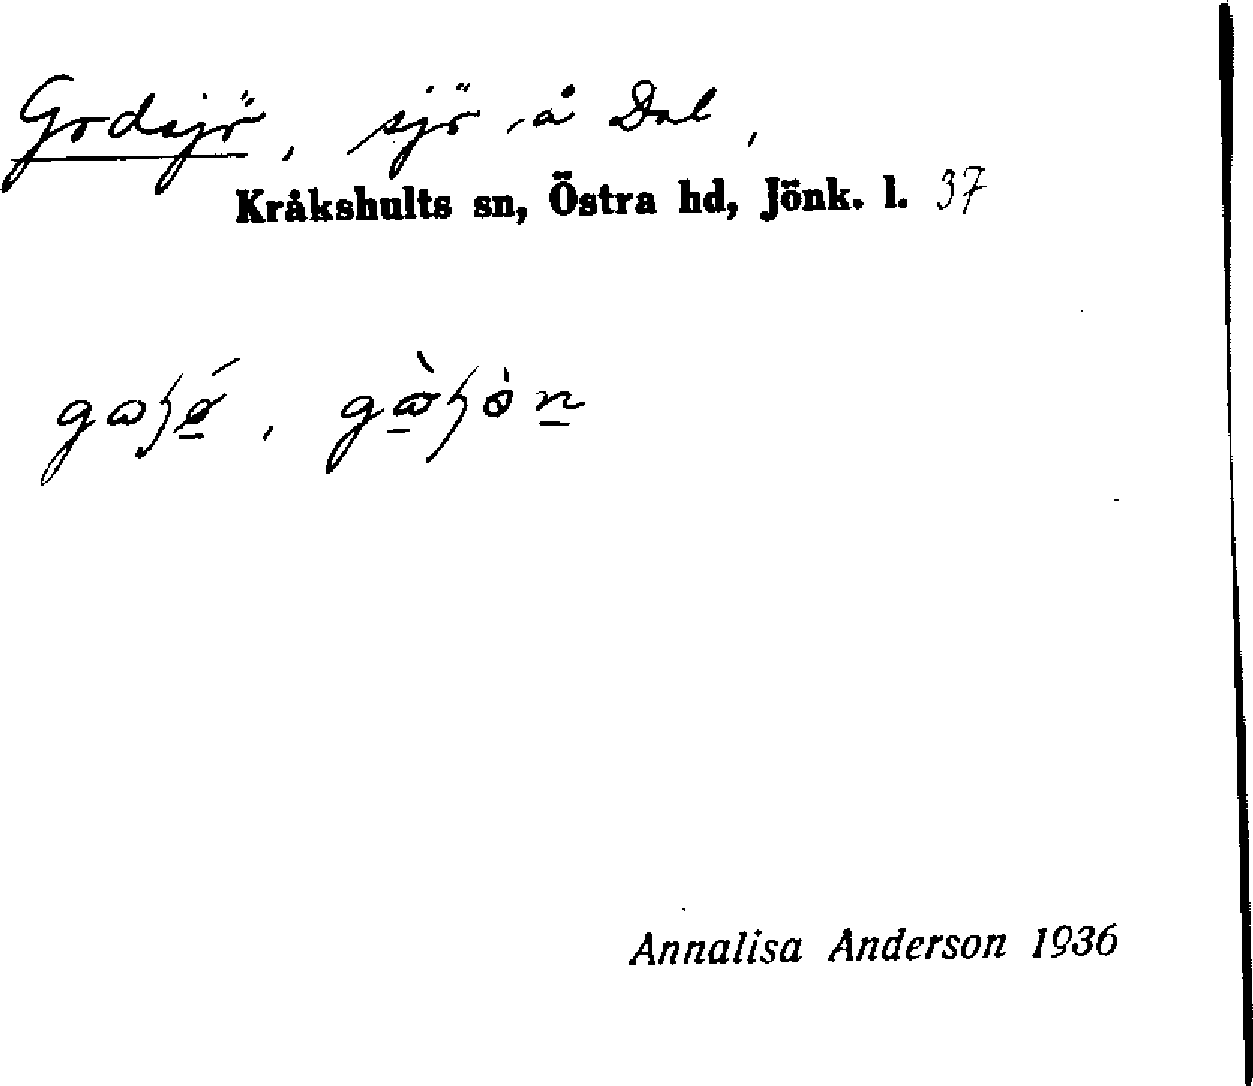 Godsjö, sjö, å Dal,
Kråkshults sn, Östra hd, Jönk. l. 37
Annalisa Anderson 1936